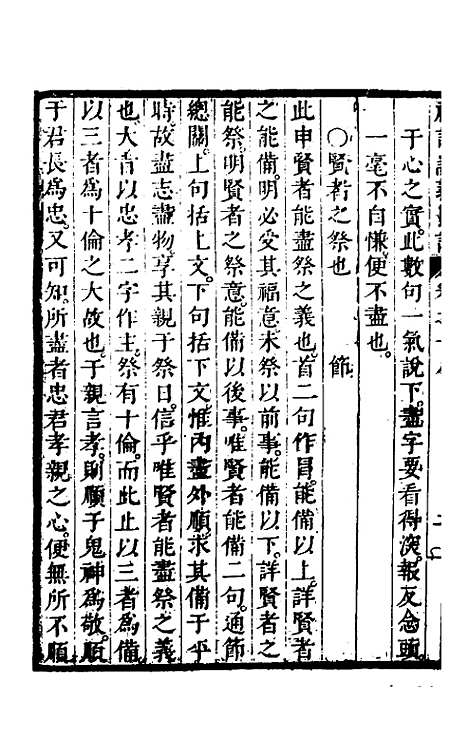 于心之實此數句一氣說下盡字要看得深報反念頭
一毫不自慊便不盡也
○賢者之祭也　節
此申賢者能盡祭之義也首二句作冒能備以上詳賢者
之能備明必受其福意未祭以前事能備以下詳賢者之
能祭明賢者之祭意能備以後事唯賢者能備二句通節
總關上句括上文下句括下文惟內盡外順求其備于平
時故盡志盡物享其親于祭日信乎唯賢者能盡祭之義
也大旨以忠孝二字作主祭有十倫而此止以三者為備
以三者為十倫之大故也于親言孝則順于鬼神為敬順
于君長為忠又可知所盡者忠君孝親之心便無所不順